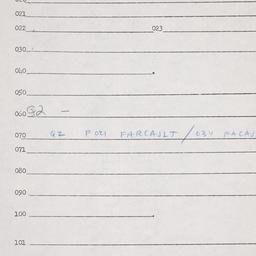 021
022 023
030
040
050
060 G2 -
070 G2 F 021 FARCAULT / 034 FACAU
071
080
090
100
101